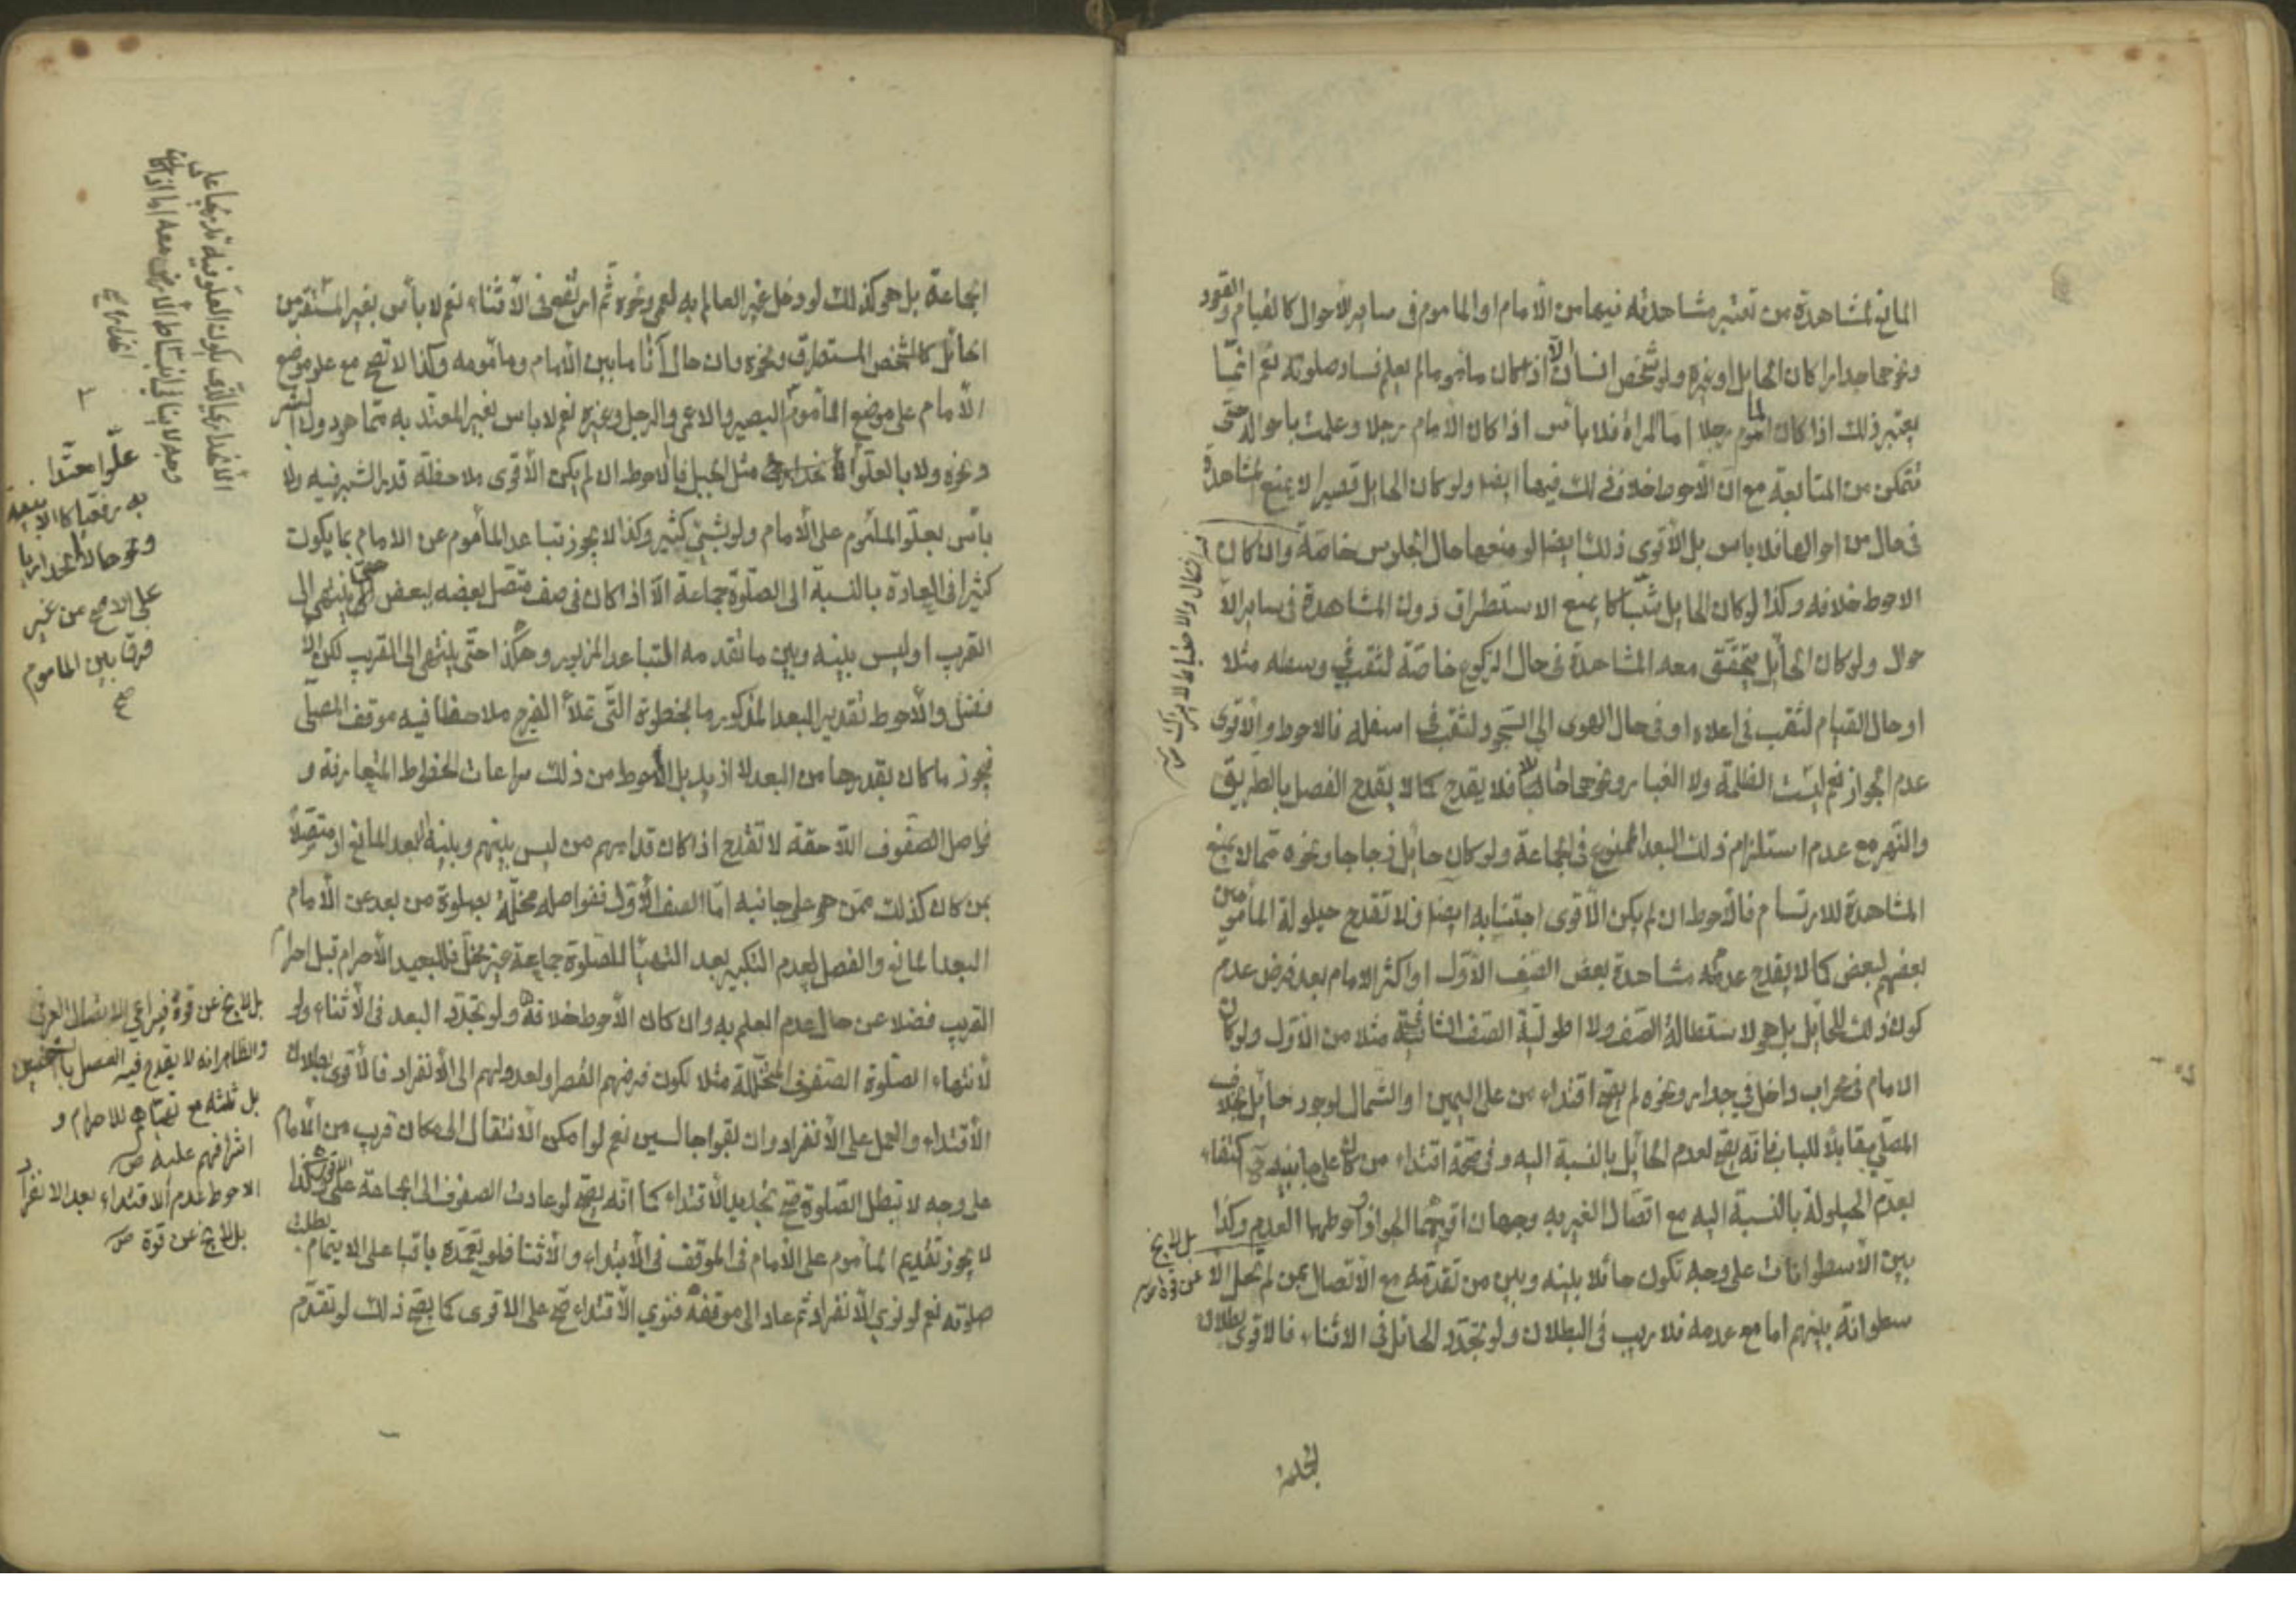 المانع لمشاهدة من تعتبر مشاهدته فيها من الأمام او الماموم فى ساير الأحوال كالقيام والقعود
ونحوهما جدارا كان الحايل او غيره ولو شخص انسان الا اذا كان مأموما لم يعلم فساد صلوته نعم انما
يعتبر ذلك اذا كان المأموم رجلا اما المراة فلا بأس اذا كان الأمام رجلا وعلمت باحواله حتى
تتمكن من المتابعة مع ان الأحوط خلاف ذلك فيها ايضا ولو كان الحايل قصيرا لا يمنع المشاهدة
فى حال من احوالها فلا باس بل الأقوى ذلك ايضا لو منعها حال الجلوس خاصة وان كان
الاحوط خلافه وكذا لو كان الحايل شباكا يمنع الاستطراق دون المشاهدة فى ساير الأ
حوال ولو كان الحايل يتحقق معه المشاهدة فى حال الركوع خاصة لثقب فى وسطه مثلا
او حال القيام لثقب فى اعلاه او فى حال الهوى الى السجود لثقب فى اسفله فالاحوط والأقوى
عدم الجواز نعم ليست الظلمة ولا الغبار ونحوهما حائلا فلا يقدح كما لا يقدح الفصل بالطريق
والنهر مع عدم استلزام ذلك البعد الممنوع فى الجماعة ولو كان حايل زجاجا ونحوه مما لا يمنع
المشاهدة للارتسام فالأحوط ان لم يكن الأقوى اجتنابه ايضا ولا تقدح حيلولة المأمومين
بعضهم لبعض كما لا يقدح عدم مشاهدة بعض الصف الأول او اكثر الامام بعد فرض عدم
كون ذلك للحايل بل هو لاستطالة الصف ولا اطولية الصف الثانى مثلا من الأول ولو كان
الامام فى محراب داخل فى جدار ونحوه لم يصح اقتداء من على اليمين او الشمال لوجود حايل بخلاف
المصلى مقابلا للباب فانه يصح لعدم الحايل بالنسبة اليه وفى صحة اقتداء من كان على جانبيه اكتفاء
بعدم الحيلولة بالنسبة اليه مع اتصال الغير به وجهان اقويهما الجواز واحوطهما العدم وكذا
بين الأسطوانات على وجه تكون حائلا بينه وبين من تقدمه مع الأتصال بمن لم تحل الا
سطوانة بينهم اما مع عدمه فلا ريب فى البطلان ولو تجدد الحائل فى الاثناء فالاقوى بطلان
بل لا يخ
عن قوة
الجماعة بل هو كذلك لو دخل غير العالم به لعمى ونحوه ثم ارتفع فى الأثناء نعم لا بأس بغير المستقر من
الحائل كالشخص المستطرق ونحوه وان حال آنا ما بين الأمام ومأمومه وكذا لا تصح مع علو موضع
الأمام على موضع المأموم البصير والاعمى والرجل وغيره نعم لا باس بغير المعتد به مما هو دون الشبر
ونحوه ولا بالعلو الانحدارى مثل الجبل فالاحوط ان لم يكن الأقوى ملاحظة قدر الشبر فيه ولا
بأس بعلو المأموم على الأمام ولو بشئ كثير وكذا لا يجوز تباعد المأموم عن الامام بما يكون
كثيرا فى العادة بالنسبة الى الصلوة جماعة الا اذا كان فى صف متصل بعضه ببعض حتى ينتهى الى
القريب او ليس بينه وبين ما تقدمه التباعد المزبور وهكذا حتى ينتهى الى القريب لكن الأ
فضل والأحوط تقدير البعد المذكور بالخطوة التى تملأ الفرج ملاحظا فيه موقف المصلى
فيجوز ما كان بقدرها من البعد لا ازيد بل الأحوط من ذلك مراعات الخطوط المتعارفة و
فواصل الصفوف اللاحقة لا تقدح اذا كان قدامهم من ليس بينهم وبينه البعد المانع او متصلا
بمن كان كذلك ممن هو على جانبه اما الصف الأول ففواصله مخلة بصلوة من بعد عن الأمام
البعد المانع والفصل لعدم التكبير بعد التهيأ للصلوة جماعة غير مخل فللبعيد الأحرام قبل احرام
القريب فضلا عن حال عدم العلم به وان كان الأحوط خلافه ولو تجدد البعد فى الأثناء ولو
لانتهاء الصلوة الصفوف المتخللة مثلا لكون فرضهم القصر او لعدولهم الى الأنفراد فالأقوى بطلان
الأقتداء والعمل على الأنفراد وان بقوا جالسين نعم لو امكن الأنتقال الى مكان قريب من الأمام
على وجه لا تبطل الصلوة صح تجديد الأقتداء كما انه يصح لو عادت الصفوف الى الجماعة على الأقوى وكذا
لا يجوز تقديم المأموم على الأمام فى الموقف فى الأبتداء والأثنا فلو تعمده باقيا على الايتمام بطلت
صلوته نعم لو نوى الأنفراد ثم عاد الى موقفه فنوى الأقتداء صح على الاقوى كما يصح ذلك لو تقدم
علوا معتدا
به دفعيا كالابنية
ونحوها لا انحداريا
على الاصح من غير
فرق بين الماموم
بل لا يخ عن قوة فيراعى الاتصال العرفى
والظاهر انه لا يقدح فيه الفصل بالشخصين
بل ثلثه مع تهيأهم للاحرام و
اشرافهم عليه ص
الاحوط عدم الاقتداء بعد الانفراد
بل لا يخ عن قوة ص